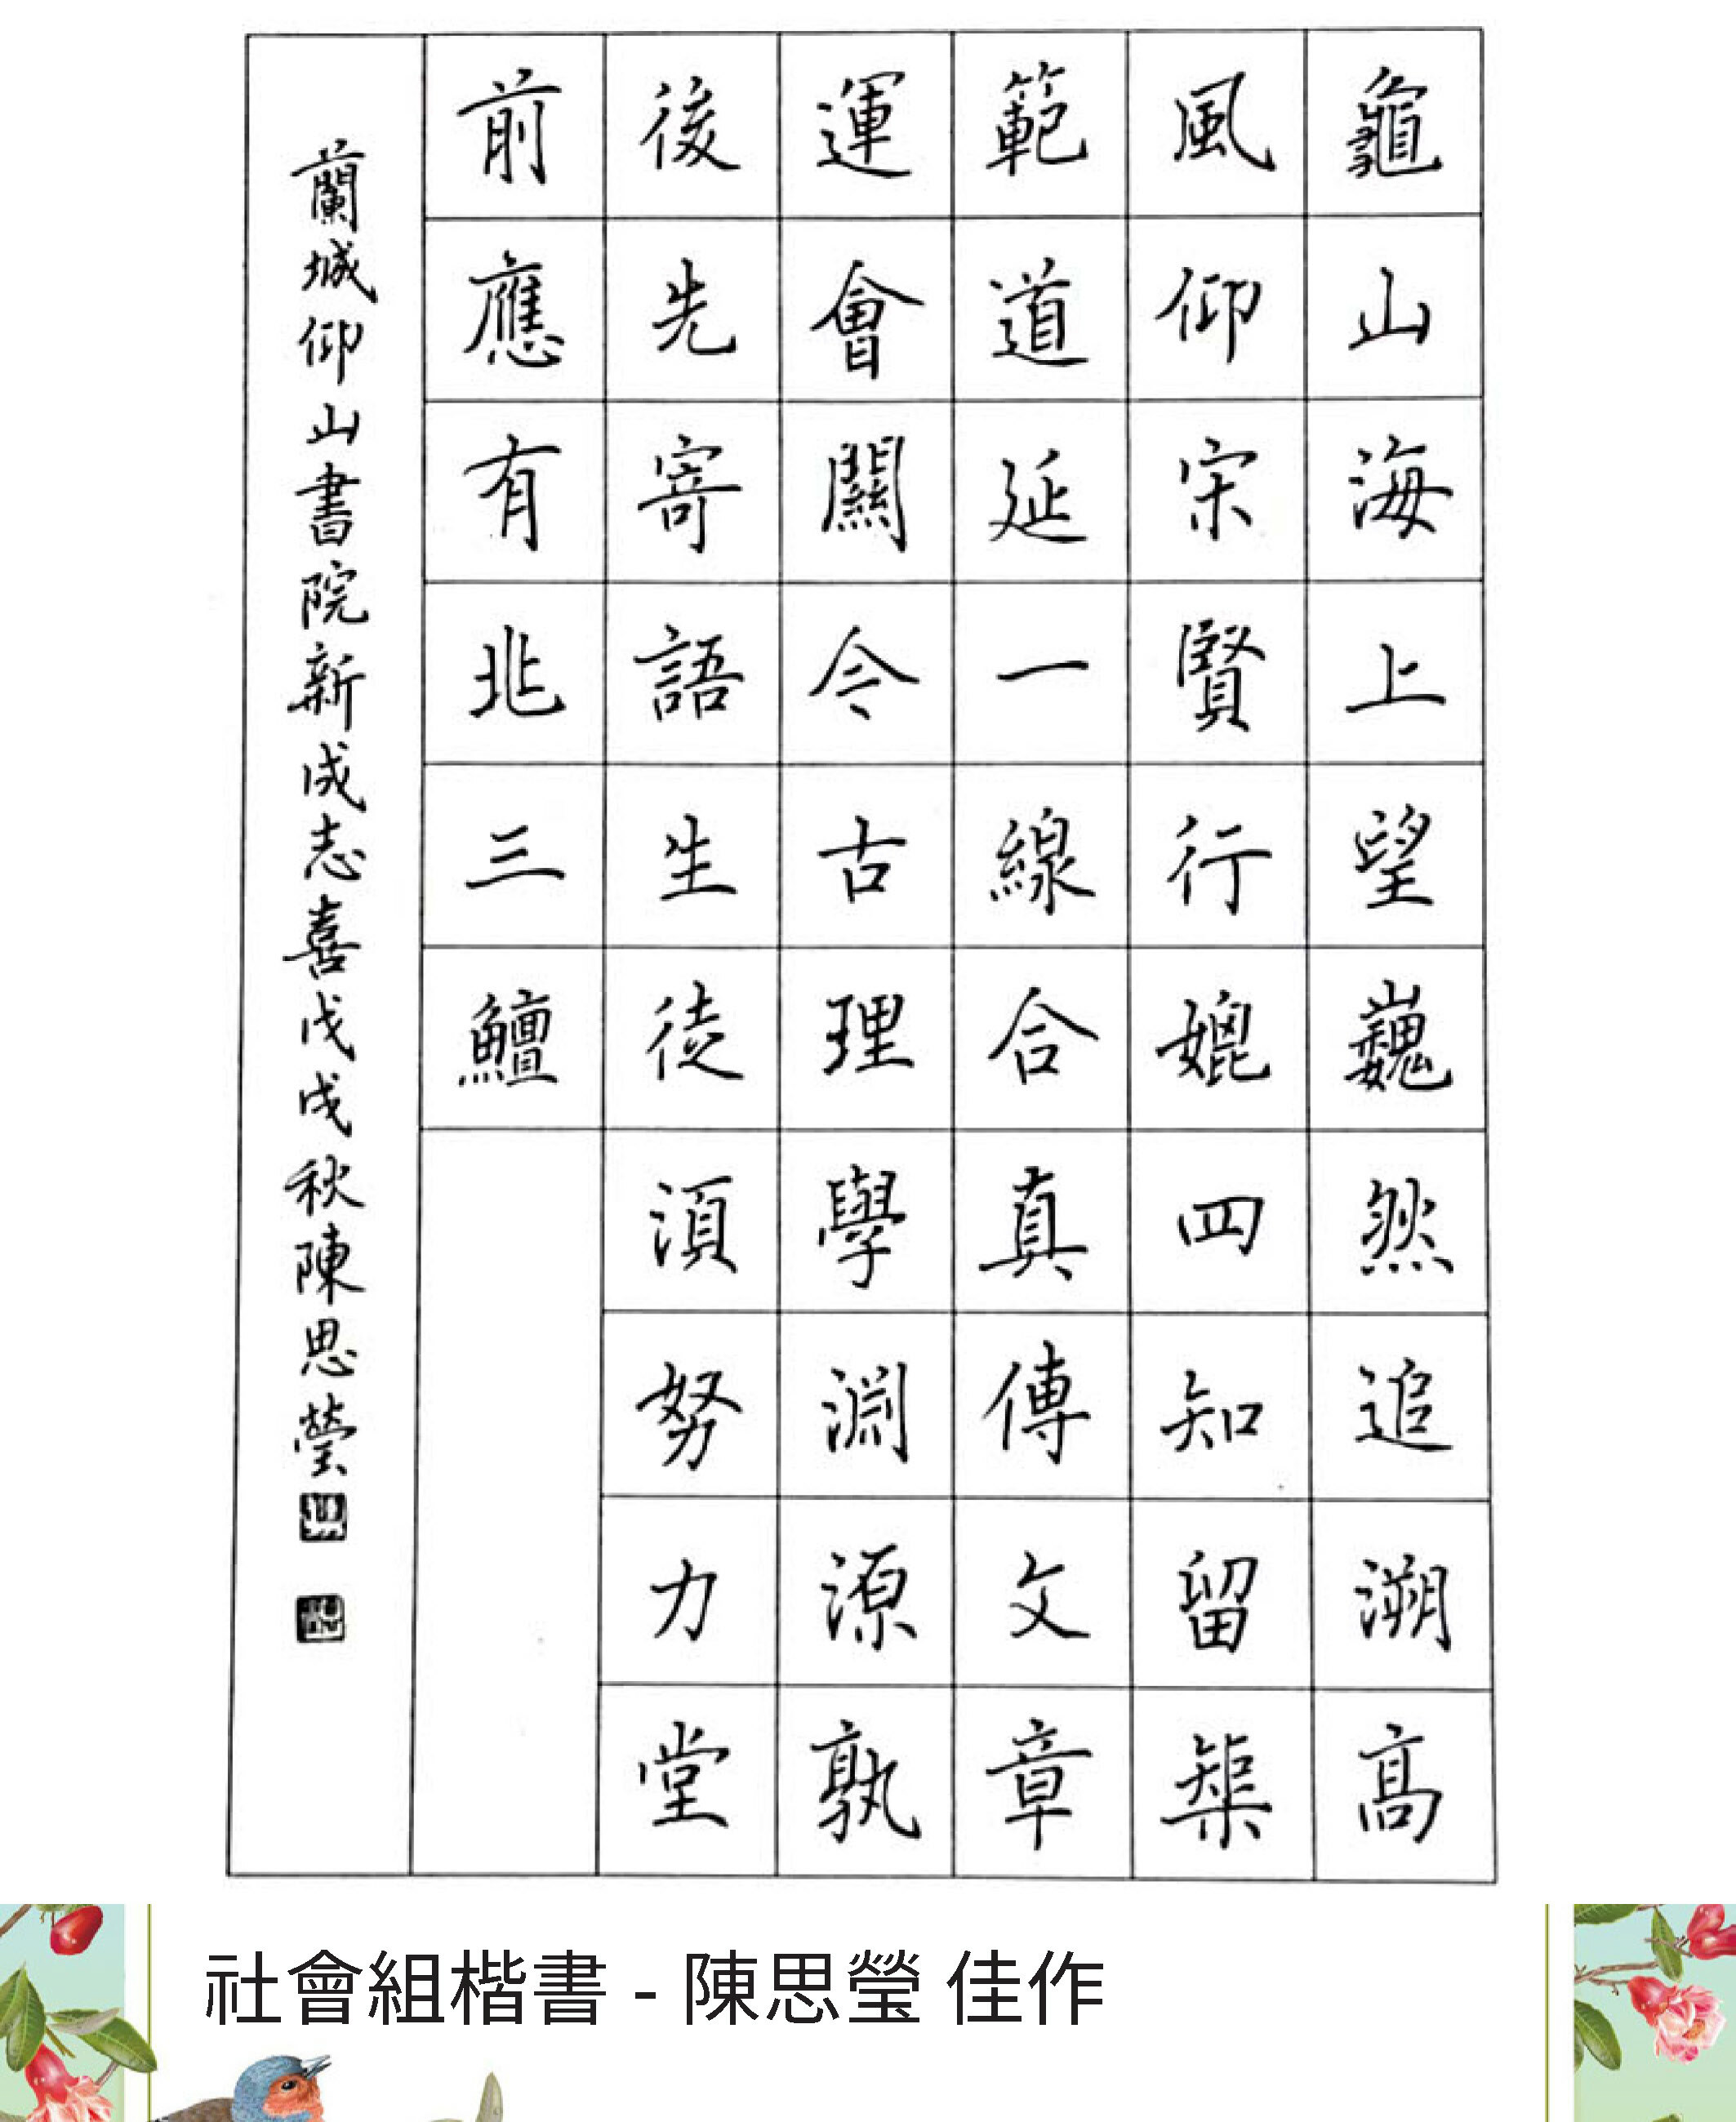 龜山海上望巍然追溯高
風仰宋賢行媲四知留榘
範道延一線合真傳文章
運會關今古理學淵源孰
後先寄語生徒須努力堂
前應有兆三鱣
蘭城仰山書院新成志喜戊戌秋陳思瑩
社會組楷書 - 陳思瑩 佳作